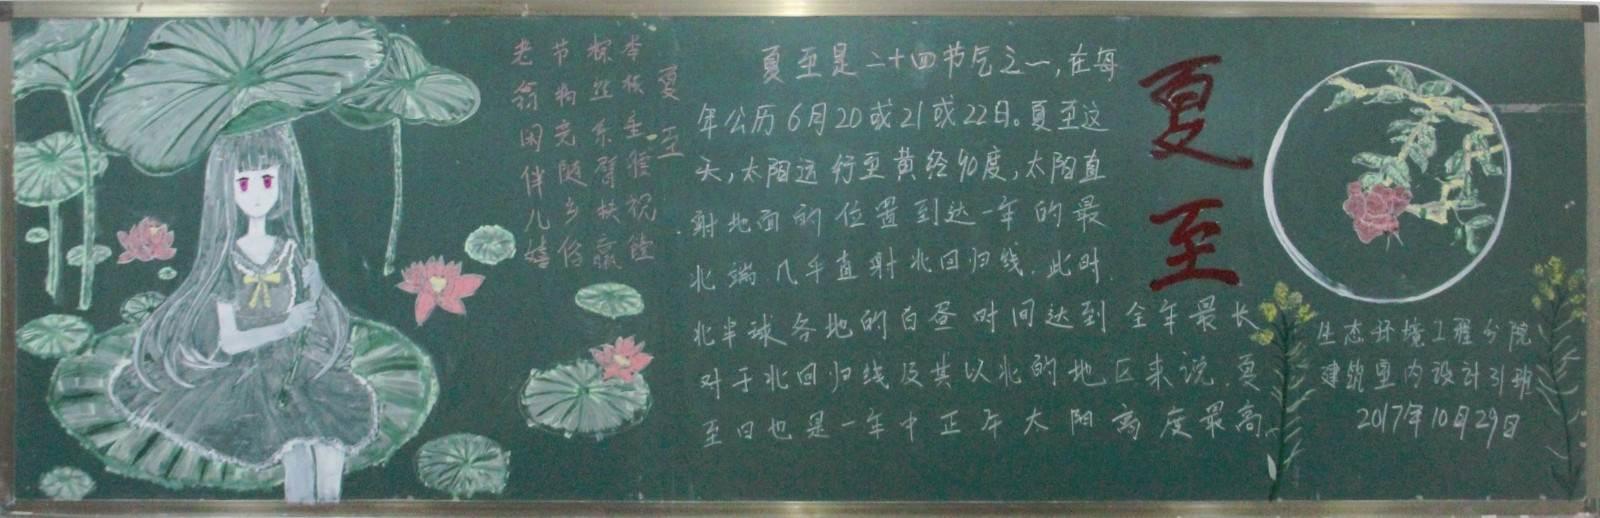 夏至
李核垂祝饐
粽丝系臂扶羸
节物竞随乡俗
老翁闲伴儿嬉
夏至是二十四节气之一,在每
年公历6月20或21或22日。夏至这
天,太阳运行至黄经90度,太阳直
射地面的位置到达一年的最
北端.几乎直射北回归线.此时.
北半球各地的白昼时间达到全年最长
对于北回归线及其以北的地区来说.夏
至日也是一年中正午太阳高度最高。
夏至
生态环境工程分院
建筑室内设计31班
2017年10月29日